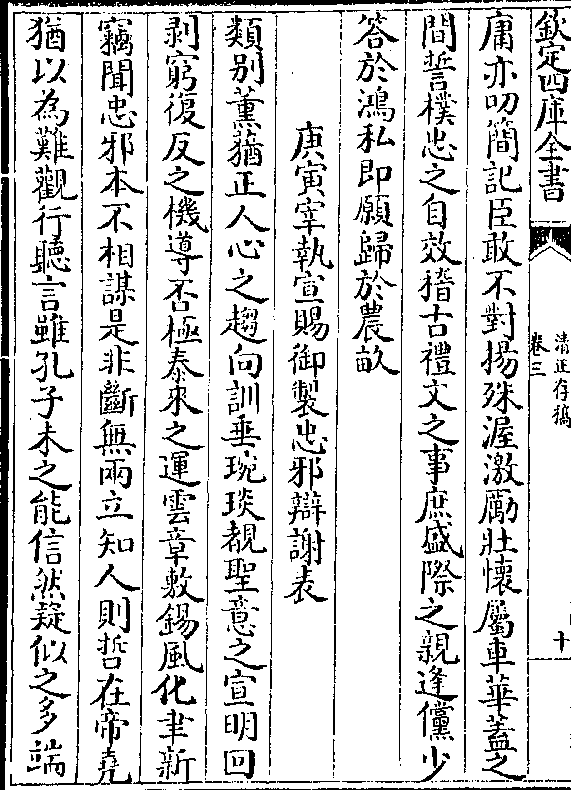 欽定四庫全書
清正存稿
卷三
十
庸亦叨簡記臣敢不對揚殊渥激厲壯懷屬車華蓋之
間誓樸忠之自效稽古禮文之事庶盛際之親逢儻少
答於鴻私即願歸於農畝
庚寅宰執宣賜御製忠邪辯謝表
類别薰蕕正人心之趨向訓垂琬琰覩聖意之宣明回
剥窮復反之機導否極泰來之運雲章敷錫風化聿新
竊聞忠邪本不相謀是非斷無兩立知人則哲在帝堯
猶以為難觀行聽言雖孔子未之能信然疑似之多端